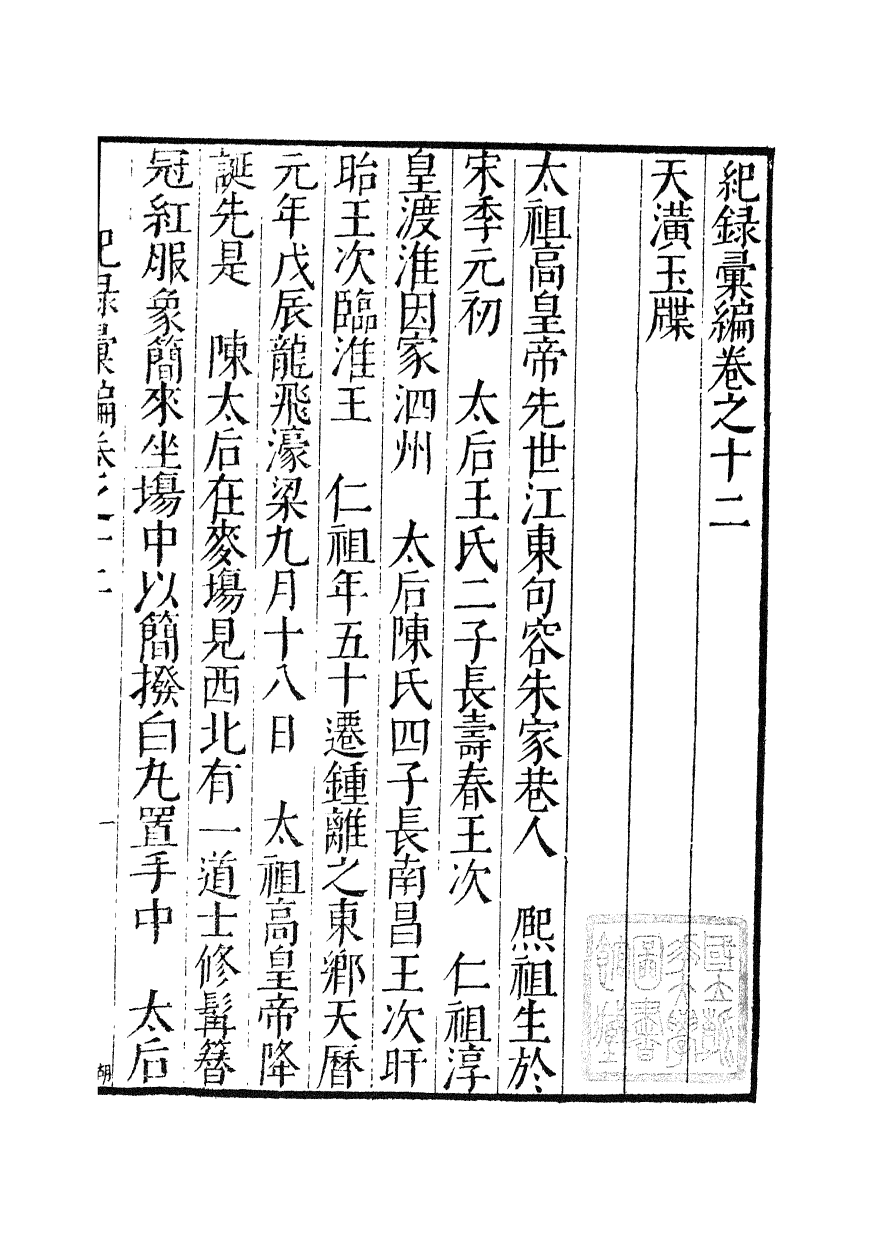 紀録彙編卷之十二
天潢玉牒
太祖高皇帝先世江東句容朱家巷人　熈祖生於
宋季元初　太后王氏二子長壽春王次　仁祖淳
皇渡淮因家泗州　太后陳氏四子長南昌王次盱
眙王次臨淮王　仁祖年五十遷鍾離之東鄉天曆
元年戊辰龍飛濠梁九月十八日　太祖高皇帝降
誕先是　陳太后在麥場見西北有一道士修髯簪
冠紅服象簡來坐塲中以簡撥白丸置手中　太后
紀録彙編卷之十二　一　胡